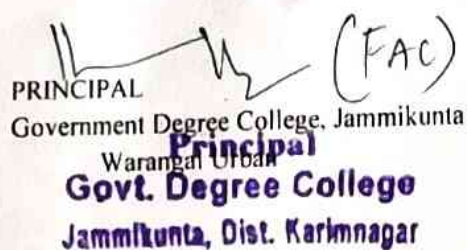 (FAC)
PRINCIPAL
Government Degree College, Jammikunta
Warangal Urban
Principal
Govt. Degree College
Jammikunta, Dist. Karimnagar